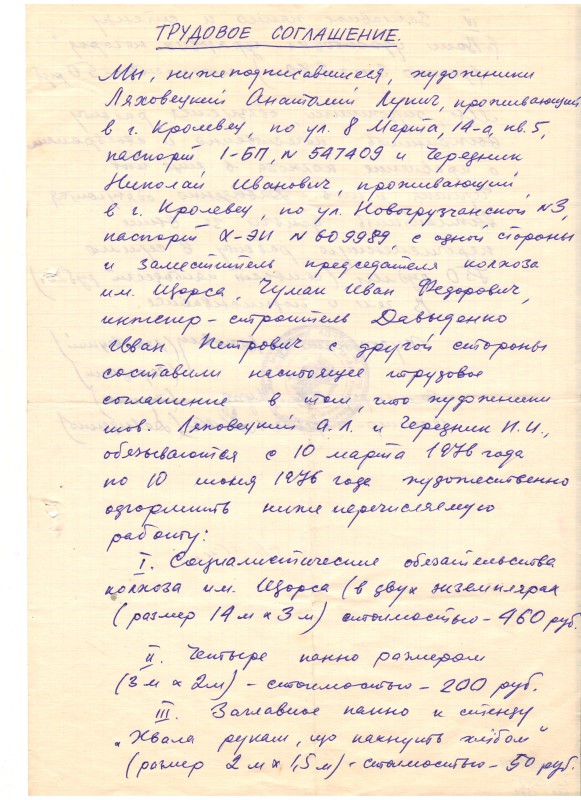 ТРУДОВОЕ СОГЛАШЕНИЕ.
Мы, нижеподписавшиеся, художники
Ляховецкий Анатолий Лукич, проживающий
в г. Кролевец, по ул. 8 Марта, 14-а, кв. 5,
паспорт I-БП, N 547409 и Чередник
Николай Иванович, проживающий
в г. Кролевец, по ул. Новогрузчанской, N3,
паспорт X-ЭИ N 609989, с одной стороны
и заместитель председателя колхоза
им. Щорса Чумак Иван Федорович,
инженер-строитель Давыденко
Иван Петрович с другой стороны
составили настоящее трудовое
соглашение в том, что художники
тов. Ляховецкий А.Л. и Чередник Н.И.,
обязываются с 10 марта 1976 года
по 10 июня 1976 года художественно
оформить ниже перечисляемую
работу:
I. Социалистические обязательства
колхоза им. Щорса (в двух экземплярах
(размер 14 м х 3 м) стоимостью - 460 руб.
II. Четыре панно размером
(3 м х 2 м) - стоимостью - 200 руб.
III. Заглавное панно к стенду
„Хвала рукам, що пахнуть хлібом"
(размер 2 м х 1,5 м) - стоимостью - 50 руб.